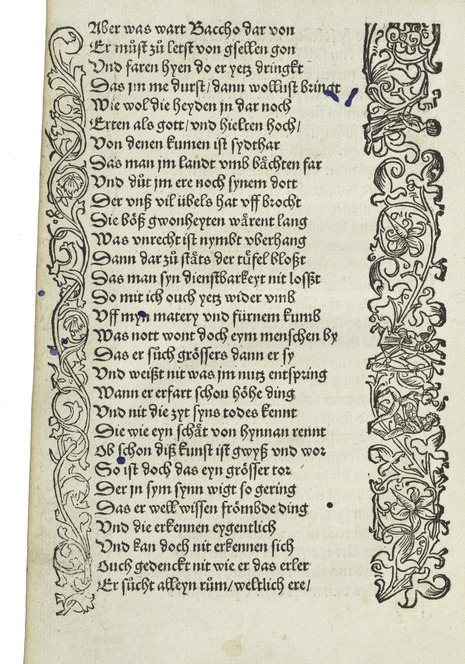 Aber was wart Baccho dar von
Er můst zů letst von gsellen gon
Vnd faren hyen do er yetz dringkt
Das jm me durst / dann wollust bringt
Wie wol die heyden jn dar noch
Erten als gott / vnd hielten hoch /
Von denen kumen ist sydthar
Das man jm landt vmb bächten far
Vnd důt jm ere noch synem dott
Der vnß vil übels hat vff brocht
Die böß gwonheyten wärent lang
Was vnrecht ist nymbt vberhang
Dann dar zů stäts der tüfel bloßt
Das man syn dienstbarkeyt nit loßt
So mit ich ouch yetz wider vmb
Vff myn matery vnd fürnem kumb
Was nott wont doch eym menschen by
Das er sůch grössers dann er sy
Vnd weißt nit was jm nutz entspring
Wann er erfart schon höhe ding
Vnd nit die zyt syns todes kennt
Die wie eyn schät von hynnan rennt
Ob schon diß kunst ist gwyß vnd wor
So ist doch das eyn grösser tor
Der jn sym synn wigt so gering
Das er well wissen frömbde ding
Vnd die erkennen eygentlich
Vnd kan doch nit erkennen sich
Ouch gedenckt nit wie er das erler
Er sůcht alleyn rům / weltlich ere /